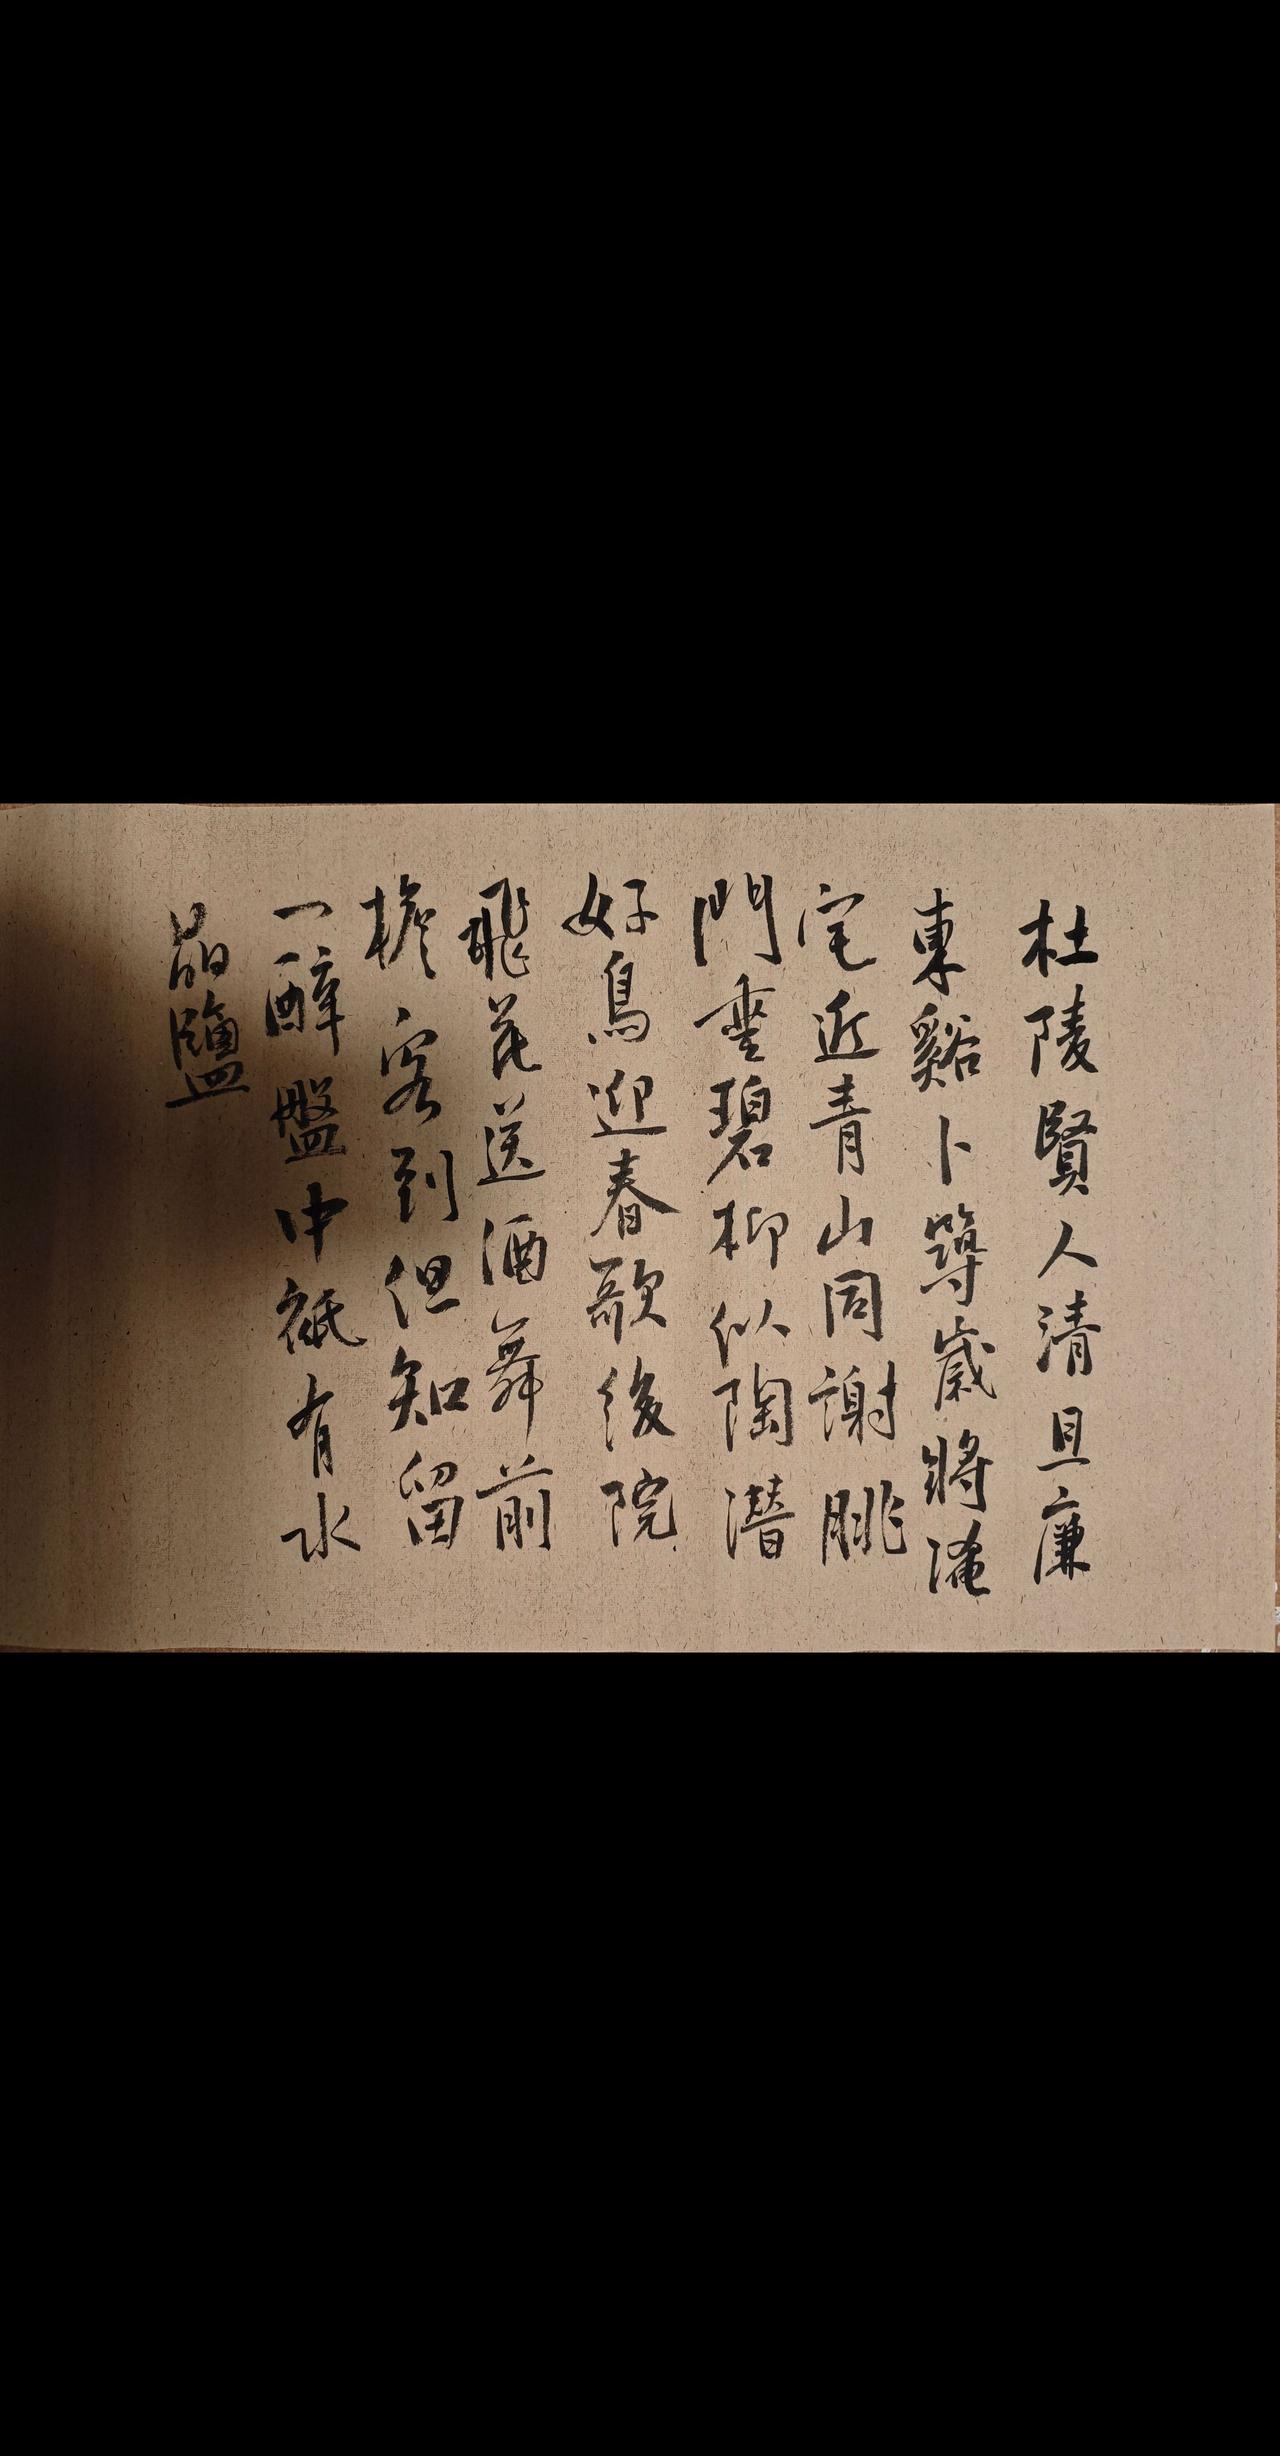 杜陵賢人清且廉
東谿卜築歲將淹
宅近青山同謝朓
門垂碧柳似陶潛
好鳥迎春歌後院
飛花送酒舞前
檐客到但知留
一醉盤中祇有水
晶鹽